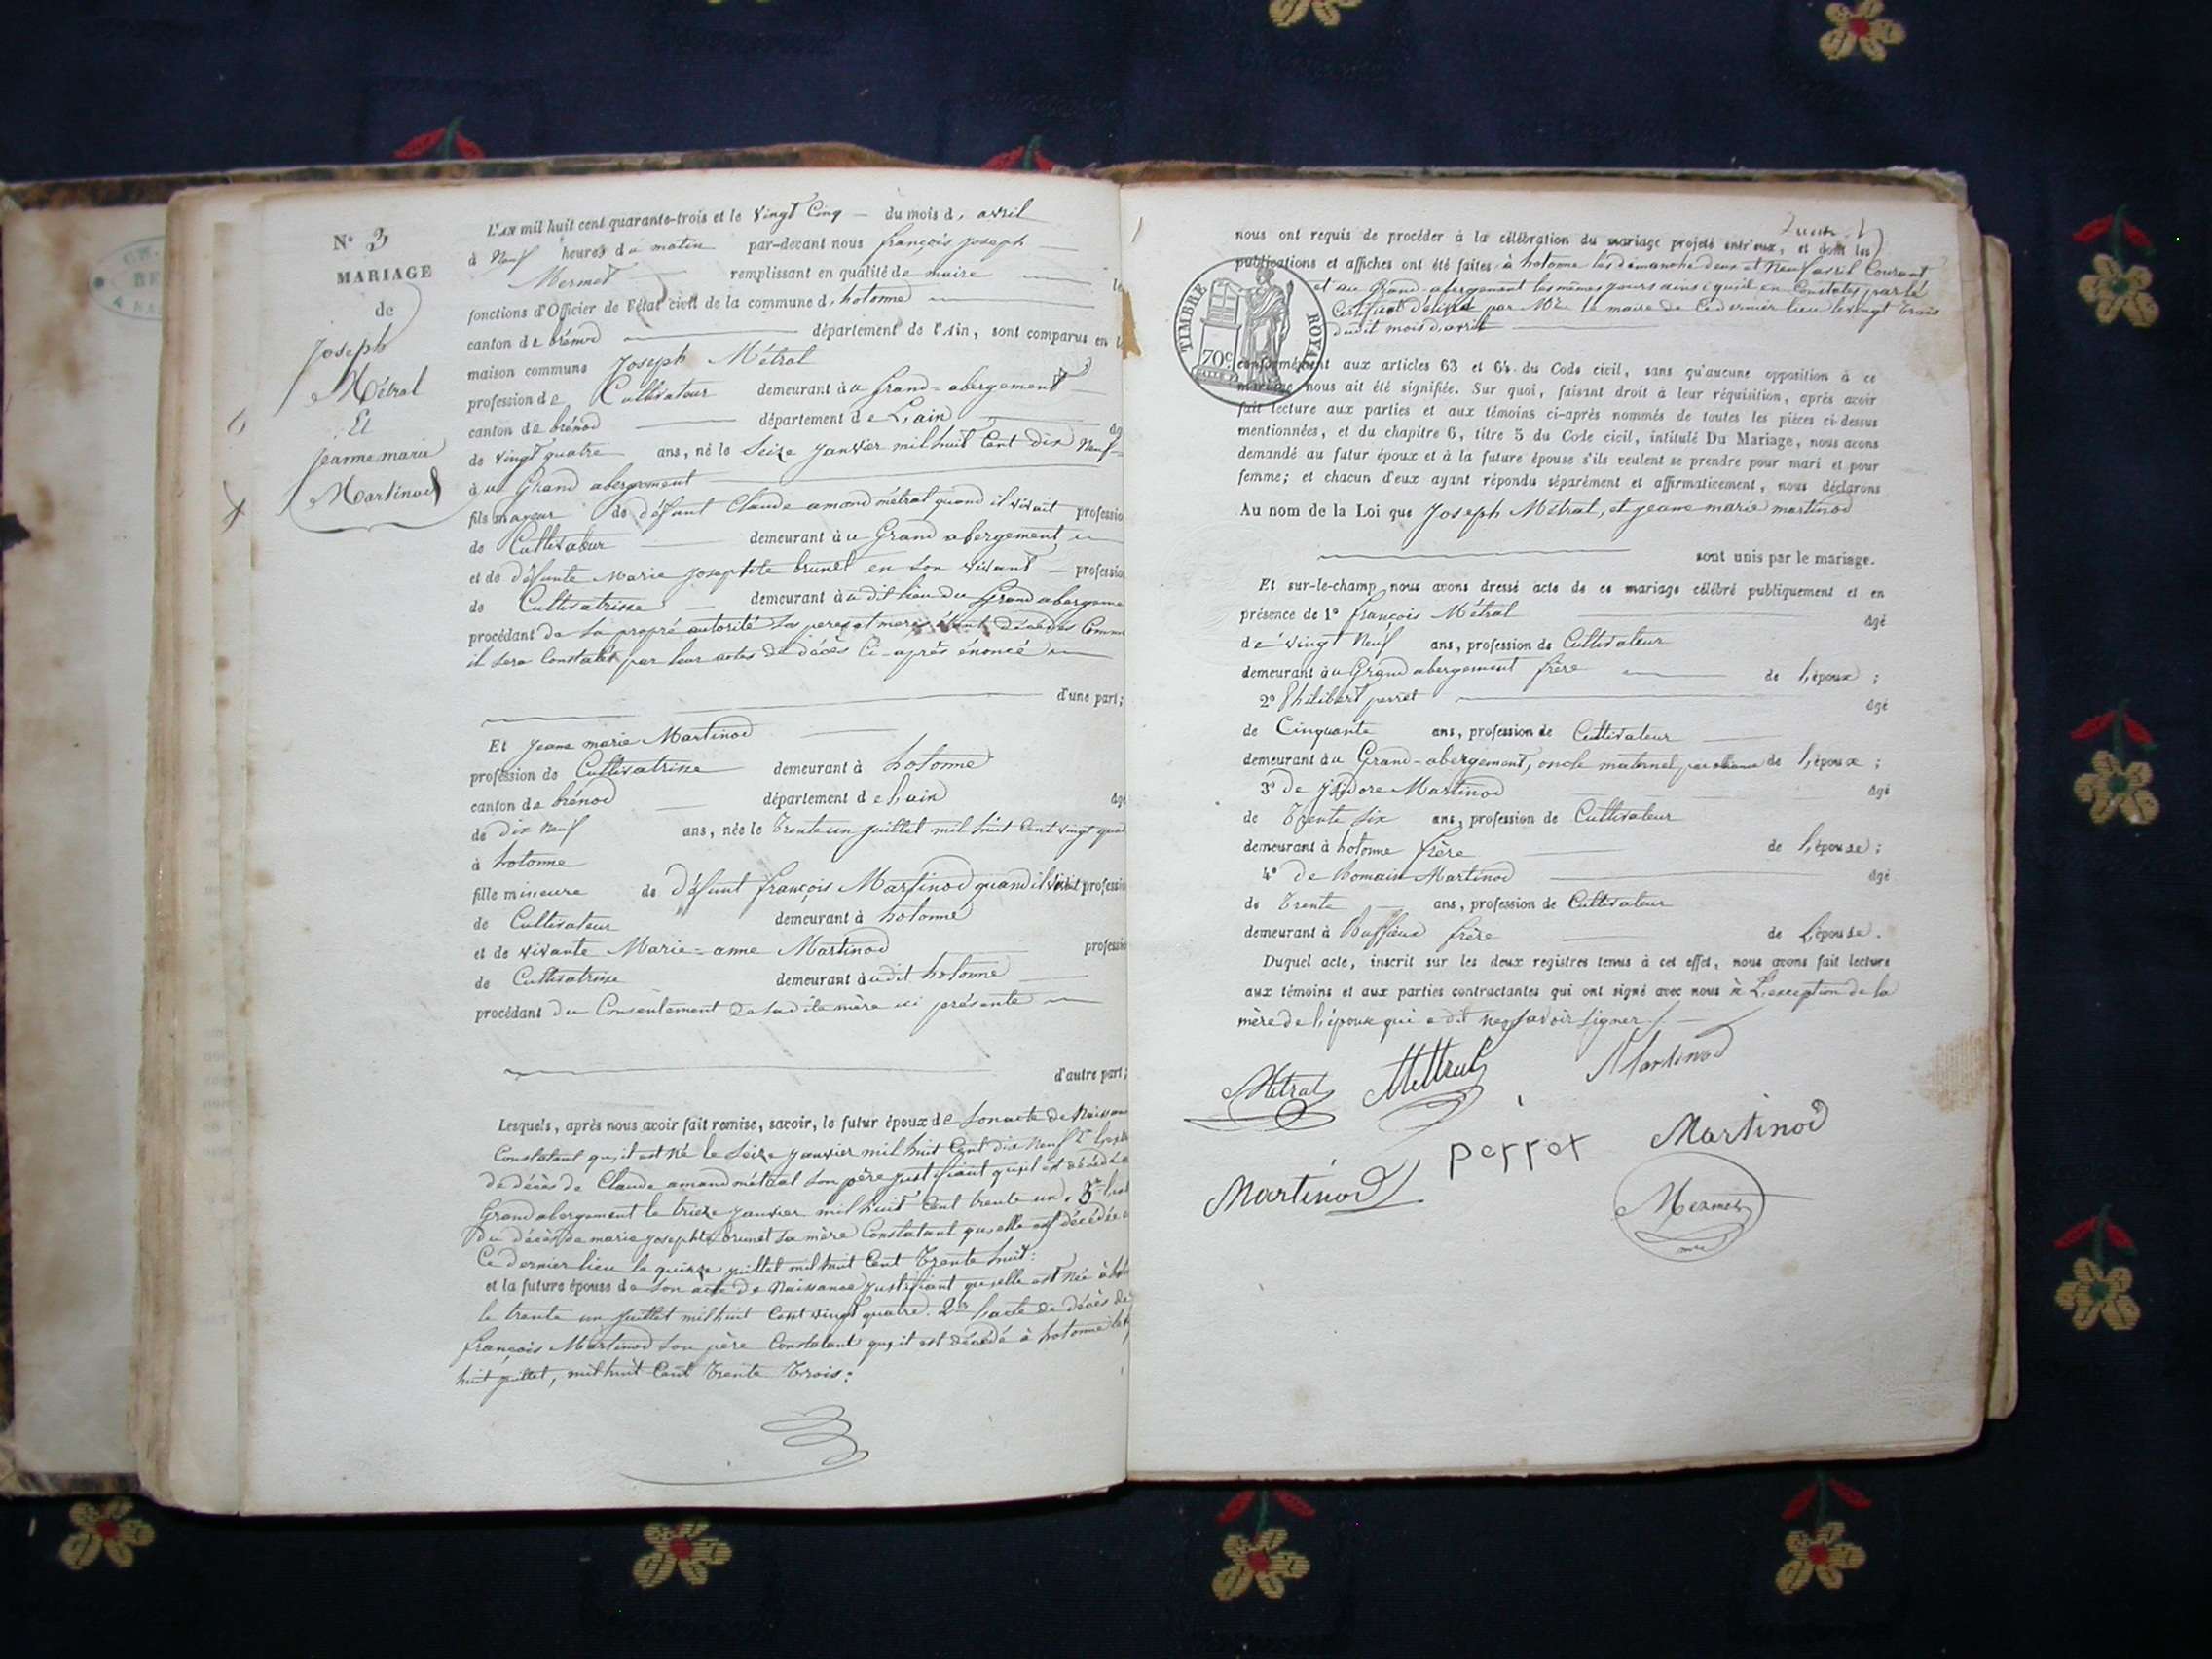 N° 3
MARIAGE
de
Joseph
Métral
Et
jeanne marie
Martinod
L'AN mil huit cent quarante-trois et le vingt Cinq du mois d, avril
à Neuf heures du matin par-devant nous françois joseph
Mermet remplissant en qualité de maire
fonctions d'Officier de l'état civil de la commune d, hotonne
canton de brénod département de l'Ain, sont comparus en
maison commune Joseph Métral
profession de Cultivateur demeurant àu Grand=abergement
canton de brénod département de L'ain
de vingt quatre ans, né le Seize janvier mil huit Cent dix Neuf
àu Grand abergement
fils majeur de défunt Claude amand métral quand il vivait professio
de Cultivateur demeurant àu Grand abergement
et de défunte Marie josephte brunet en son vivant professio
de Cultivatrise demeurant àudit lieu du Grand abergeme
procédant de sa propre autorité Ses peres et meres étant décédés Comm
il sera Constaté par leur actes de décès Ci-après énoncé
d'une part;
Et jeane marie Martinod
profession de Cultivatrise demeurant à hotonne
canton de brénod département de L'ain âgé
de dix neuf ans, née le trente un juillet mil huit Cent vingt quat
à hotonne
fille mineure de défunt françois Martinod quand il vivait professio
de Cultivateur demeurant à hotonne
et de vivante Marie=anne Martinod professio
de Cultivatrise demeurant àudit hotonne
procédant du Consentement de sadite mère ici présente
d'autre part;
Lesquels, après nous avoir fait remise, savoir, le futur époux de Son acte de Naissan
Constatant qu,il est né le Seize janvier mil huit Cent dix Neuf 2°
de décès de Claude amand métral son père justifiant qu,il est décédé
Grand abergement le treize janvier mil huit Cent trente un. 3°
du décès de marie josephte brunet Sa mère Constatant qu,elle est décédée
Ce dernier lieu le quinze juillet mil huit Cent trente huit:
et la future épouse de Son acte de Naissance justifiant qu,elle est Née à
le trente un juillet mil huit Cent vingt quatre. 2° l,acte de décès de
françois Martinod Son père Constatant qu,il est décédé à hotonne
huit juillet, mil huit Cent trente trois:
nous ont requis de procéder à la célébration du mariage projeté entr'eux, et dont les
publications et affiches ont été faites à hotonne les dimanche deux et Neuf avril Courant
et au Grand-abergement les mêmes jours ainsi qu,il en Constaté par le
Certificat délivré par Mr le maire de Ce dernier lieu le vingt trois
dudit mois d,avril
TIMBRE ROYAL
70c
conformément aux articles 63 et 64 du Code civil, sans qu'aucune opposition à ce
mariage nous ait été signifiée. Sur quoi, faisant droit à leur réquisition, après avoir
fait lecture aux parties et aux témoins ci-après nommés de toutes les pièces ci-dessus
mentionnées, et du chapitre 6, titre 5 du Code civil, intitulé Du Mariage, nous avons
demandé au futur époux et à la future épouse s'ils veulent se prendre pour mari et pour
femme; et chacun d'eux ayant répondu séparément et affirmativement, nous déclarons
Au nom de la Loi que Joseph Métral, et jeane marie martinod
sont unis par le mariage.
Et sur-le-champ nous avons dressé acte de ce mariage célébré publiquement et en
présence de 1° françois Métral âgé
de vingt Neuf ans, profession de Cultivateur
demeurant àu Grand abergement frère de l,époux ;
2° Philibert perret âgé
de Cinquante ans, profession de Cultivateur
demeurant àu Grand-abergement, oncle maternel par alliance de l,époux ;
3° De jsidore Martinod âgé
de Trente Six ans, profession de Cultivateur
demeurant à hotonne frère de l,épouse ;
4° de Romain Martinod âgé
de Trente ans, profession de Cultivateur
demeurant à Ruffieux frère de l,épouse.
Duquel acte, inscrit sur les deux registres tenus à cet effet, nous avons fait lecture
aux témoins et aux parties contractantes qui ont signé avec nous à L,exception de la
mère de l,épouse qui a dit ne savoir signer
Métral Mettral Martinod
perret Martinod
Martinod Mermet